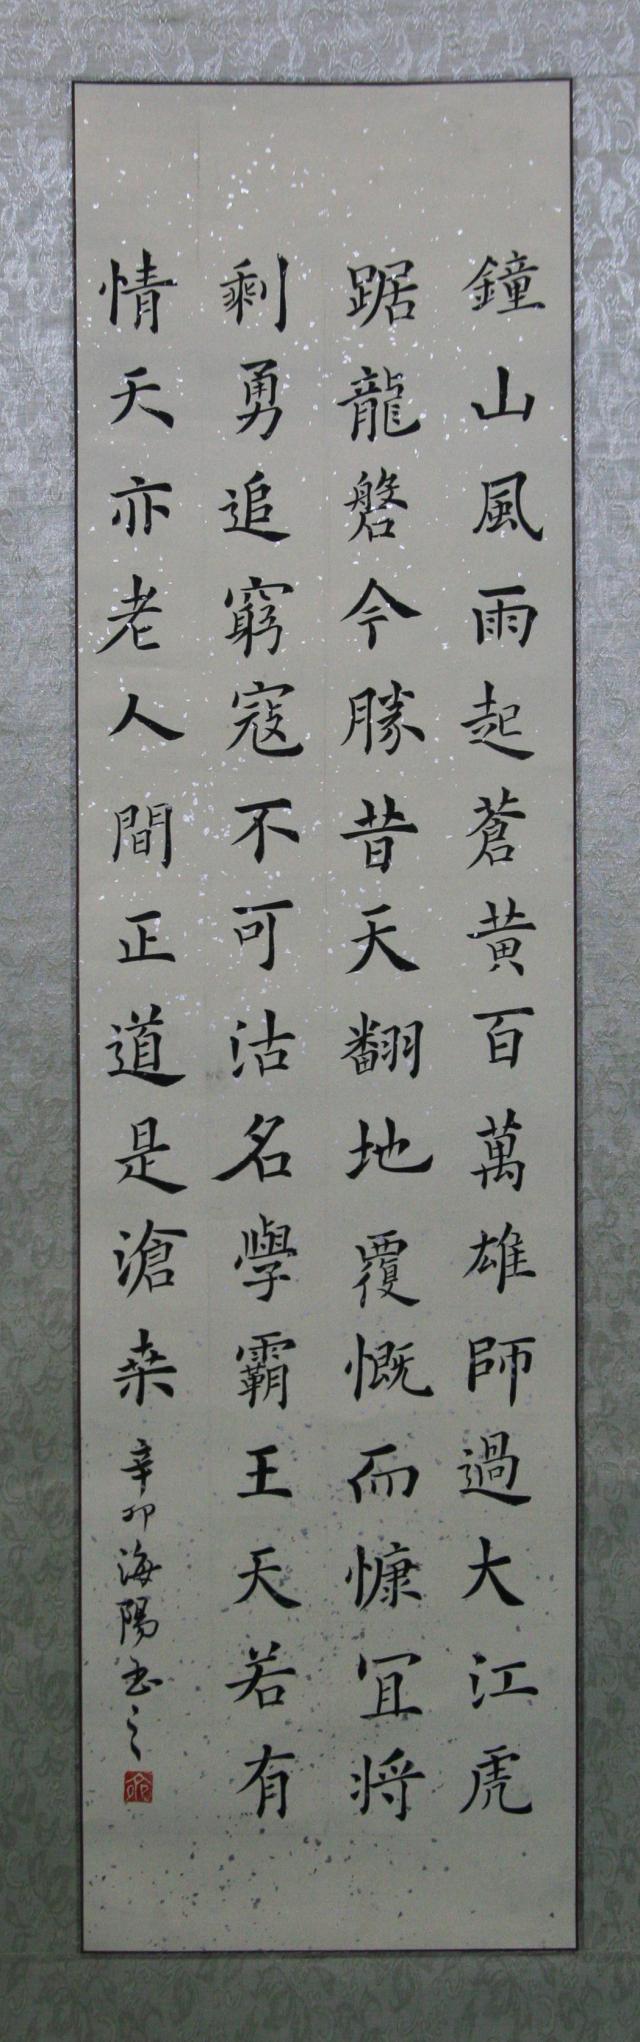 鐘山風雨起蒼黃百萬雄師過大江虎
踞龍磐今勝昔天翻地覆慨而慷宜將
剩勇追窮寇不可沽名學霸王天若有
情天亦老人間正道是滄桑辛卯海陽书之